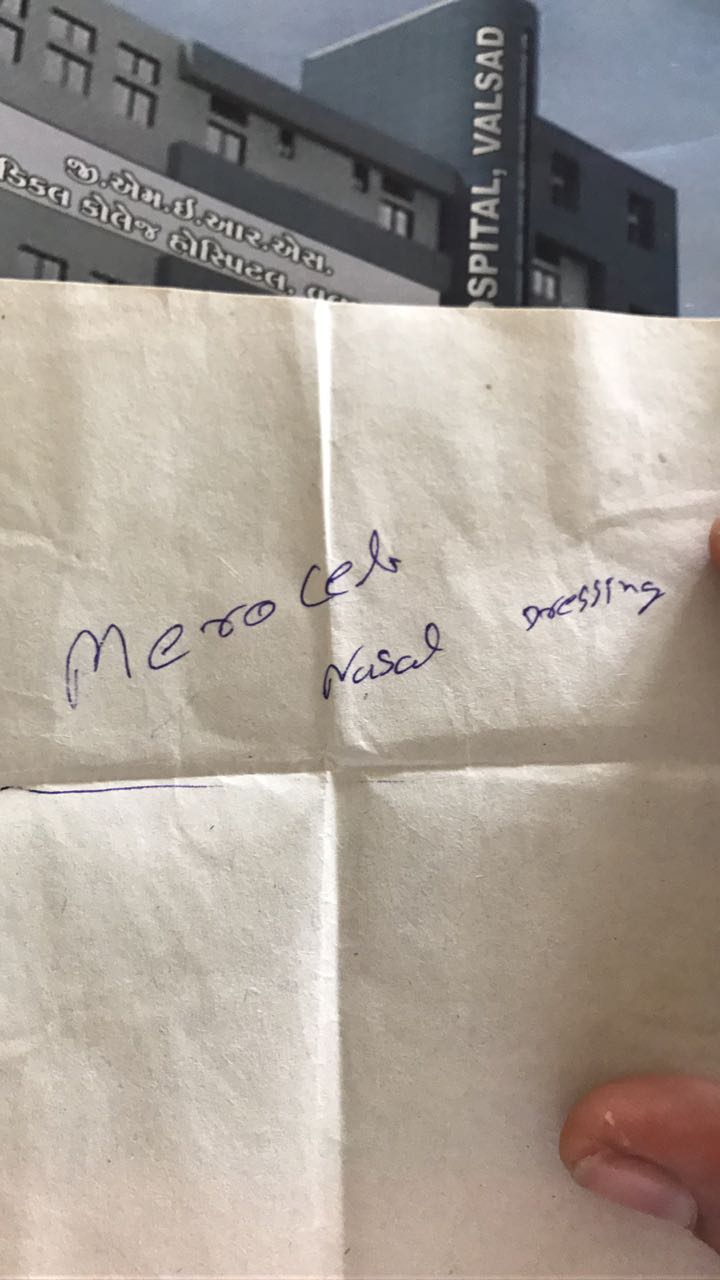 જી.એમ.ઇ.આર.એસ.
ડિકલ કોલેજ હોસ્પિટલ,
OSPITAL, VALSAD
Merocel
Nasal Dressing